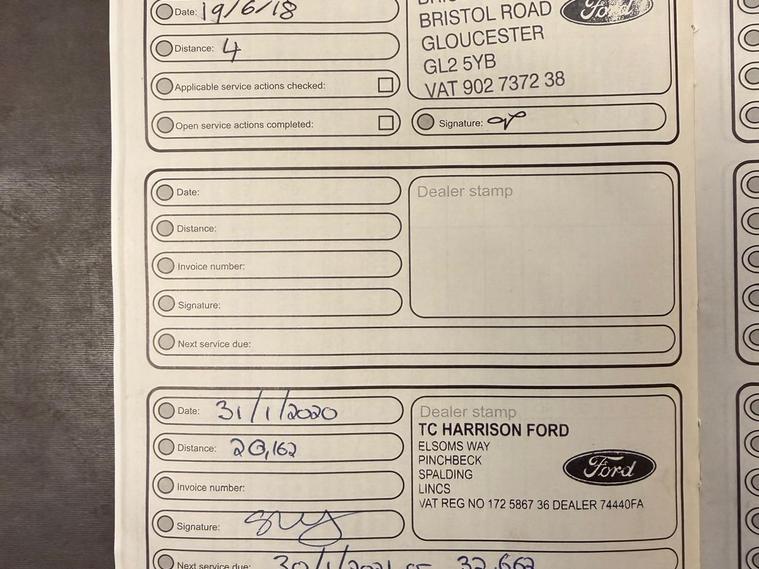 Date: 19/6/18
BRISTOL ROAD
Ford
GLOUCESTER
GL2 5YB
VAT 902 7372 38
Distance: 4
Applicable service actions checked:
Open service actions completed:
Signature:
Date:
Dealer stamp
Distance:
Invoice number:
Signature:
Next service due:
Date: 31/1/2020
Dealer stamp
TC HARRISON FORD
ELSOMS WAY
PINCHBECK
SPALDING
LINCS
VAT REG NO 172 5867 36 DEALER 74440FA
Ford
Distance: 20,162
Invoice number:
Signature:
Next service due: 30/1/2021 or 32,662